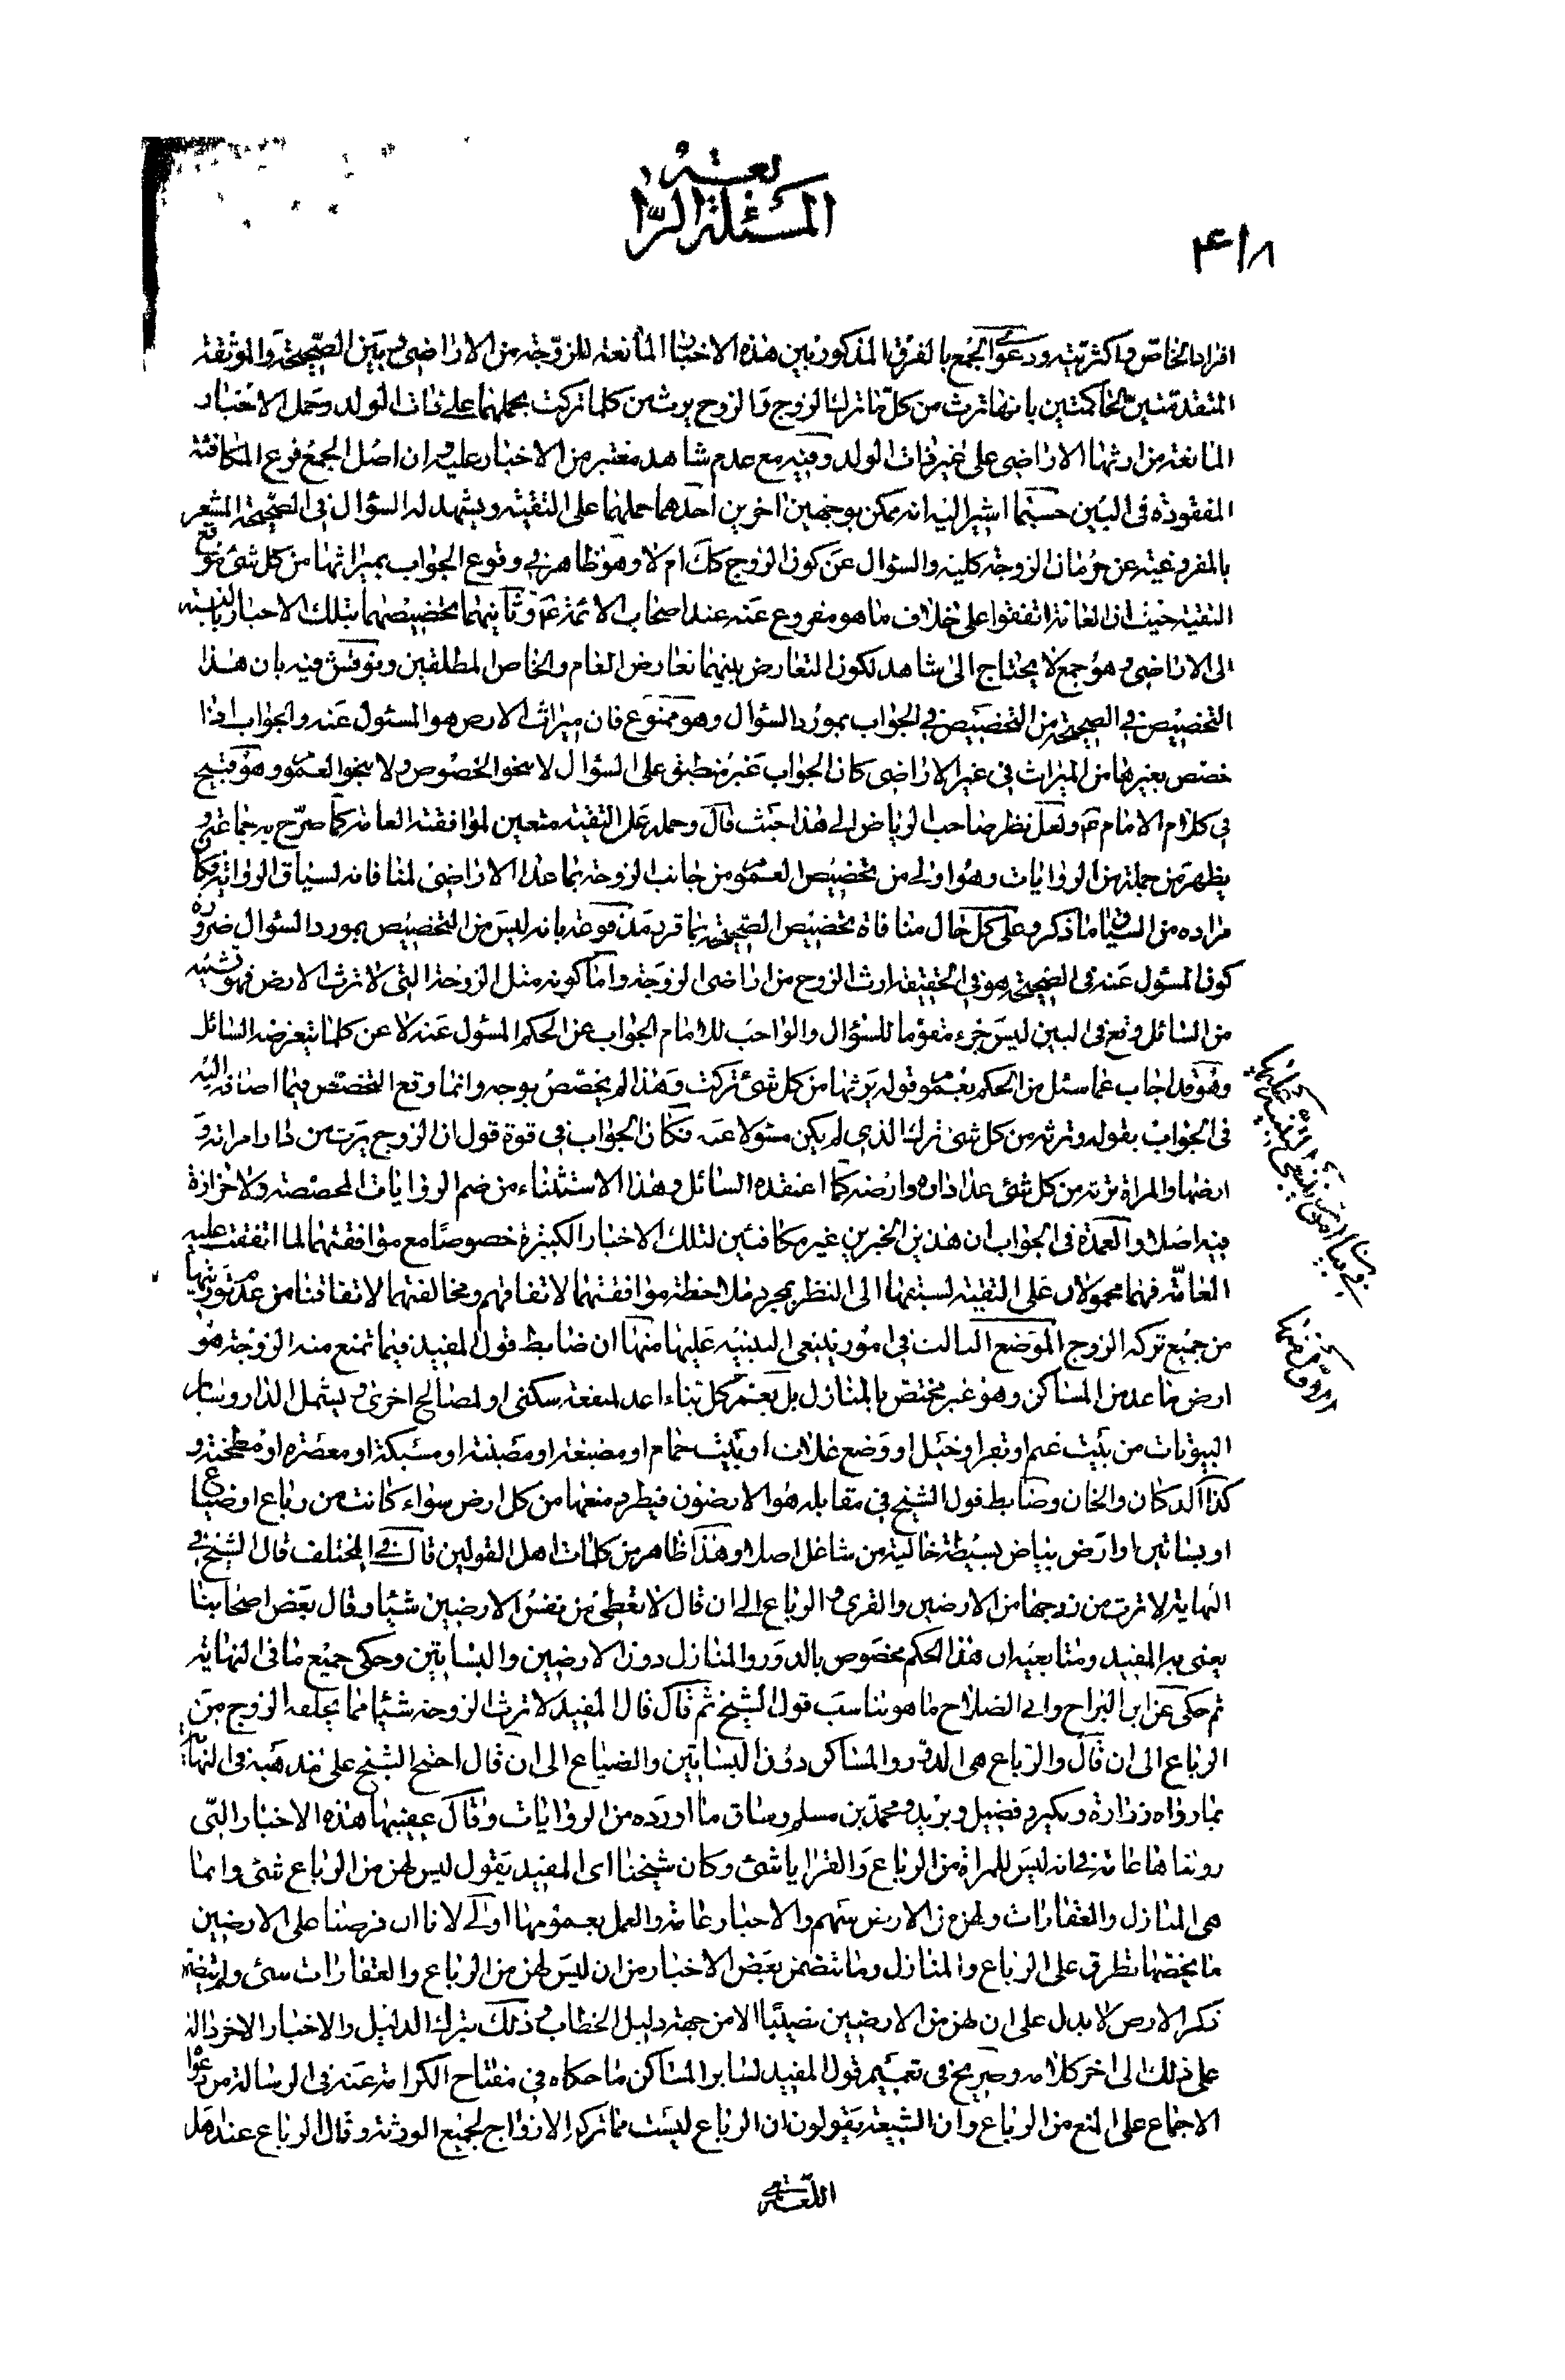 المسئلة الرابعة
۴۱۸
افراد الخاص واكثريته ودعوى الجمع بالفرق المذكور بين هذه الاخبار المانعة للزوجة من الاراضى وبين الصحيحة والموثقة
المتقدمتين الحاكمتين بانها ترث من كل ما ترك الزوج والزوج يرث من كلما تركت بحملهما على ذات الولد وحمل الاخبار
المانعة من ارثها الاراضى على غير ذات الولد وفيه مع عدم شاهد معتبر من الاخبار عليه وان اصل الجمع فرع المكافئة
المفقودة فى البين حسبما اشير اليه انه ممكن بوجهين اخرين احدهما حملهما على التقية ويشهد له السؤال فى الصحيحة المشعر
بالمفروغية عن حرمان الزوجة كلية والسؤال عن كون الزوج كك ام لا وهو ظاهر فى وقوع الجواب بميراثها من كل شئ موقع
التقية حيث ان العامة اتفقوا على خلاف ما هو مفروع عنه عند اصحاب الائمة ع وثانيهما تخصيصهما بتلك الاخبار بالنسبة
الى الاراضى وهو جمع لا يحتاج الى شاهد لكون التعارض بينهما تعارض العام والخاص المطلقين ونوقش فيه بان هذا
التخصيص فى الصحيحة من التخصيص فى الجواب بمورد السؤال وهو ممنوع فان ميراث الارض هو المسئول عنه والجواب اذا
خصص بغيرها من الميراث فى غير الاراضى كان الجواب غير منطبق على السؤال لا بنحو الخصوص ولا بنحو العموم وهو قبيح
فى كلام الامام ع ولعل نظر صاحب الرياض الى هذا حيث قال وحمله على التقية متعين لموافقته العامة كما صرح به جماعة و
يظهر من جملة من الروايات وهو اولى من تخصيص العموم من جانب الزوجة بما عدا الاراضى لمنافاته لسياق الرواية فكان
مراده من السياق ما ذكر وعلى كل حال منافاة تخصيص الصحيحة بما قرر مدفوعة بانه ليس من التخصيص بمورد السؤال ضرورة
كون المسئول عنه فى الصحيحة هو فى الحقيقة ارث الزوج من اراضى الزوجة واما كونه مثل الزوجة التى لا ترث الارض فهو تشبيه
من السائل وقع فى البين ليس جزء مقوما للسؤال والواجب للامام الجواب عن الحكم المسئول عنه لا عن كلما يتعرضه السائل
وهو قد اجاب عما سئل من الحكم بعموم قوله يرثها من كل شئ تركت وهذا لم يخصص بوجه وانما وقع التخصص فيما اضافه اليه
فى الجواب بقوله وترثه من كل شئ ترك الذى لم يكن مسئولا عنه فكان الجواب فى قوة قول ان الزوج يرث من دار امراته و
ارضها والمراة ترثه من كل شئ عدا داره وارضه كما اعتقده السائل وهذا الاستثناء من ضم الروايات المخصصة ولا حزازة
فيه اصلا والعمدة فى الجواب ان هذين الخبرين غير مكافئين لتلك الاخبار الكثيرة خصوصا مع موافقتهما لما اتفقت عليه
العامة فهما محمولان على التقية لسبقها الى النظر بمجرد ملاحظة موافقتهما لاتفاقهم ومخالفتهما لاتفاقنا من عدم توريثها
من جميع تركه الزوج الموضع الثالث فى امور ينبغى التنبيه عليها منها ان ضابط قول المفيد فيما تمنع منه الزوجة هو
ارض ما عد من المساكن وهو غير مختص بالمنازل بل يعم كل بناء اعد لمنفعة سكنى او لمصالح اخرى ويشمل الدار وساير
البيوتات من بيت غنم او بقر او خيل او وضع غلات او بيت حمام او مصبغة او مصبنة او مسبكة او معصرة او مطحنة و
كذا الدكان والخان وضابط قول الشيخ فى مقابله هو الارضون فيطرد منعها من كل ارض سواء كانت من رباع او ضياع
او بساتين او ارض بياض بسيطة خالية من شاغل اصلا وهذا ظاهر من كلمات اهل القولين قال فى المختلف قال الشيخ فى
النهاية لا ترث من زوجها من الارضين والقرى والرباع الى ان قال لا تعطى من نفس الارضين شيئا وقال بعض اصحابنا
يعنى به المفيد ومتابعيه ان هذا الحكم مخصوص بالدور والمنازل دون الارضين والبساتين وحكى جميع ما فى النهاية
ثم حكى عن ابن البراج وابى الصلاح ما هو يناسب قول الشيخ ثم قال قال المفيد لا ترث الزوجة شيئا مما يخلفه الزوج من
الرباع الى ان قال والرباع هى الدور والمساكن دون البساتين والضياع الى ان قال احتج الشيخ على مذهبه فى النهاية
بما رواه زرارة وبكير وفضيل وبريد ومحمد بن مسلم وساق ما اورده من الروايات وقال عقيبها هذه الاخبار التى
رويناها عامة فى انه ليس للمراة من الرباع والقرايا شئ وكان شيخنا اى المفيد يقول ليس لهن من الرباع شئ وانما
هى المنازل والعقارات ولهن من الارض سهم والاخبار عامة والعمل بعمومها اولى لانا ان فرضنا على الارضين
ما يخصها تطرق على الرباع والمنازل وما تضمن بعض الاخبار من ان ليس لهن من الرباع والعقارات شئ ولم يتضمن
ذكر الارض لا يدل على ان لهن من الارضين نصيبا الا من جهة دليل الخطاب وذلك يترك الدليل والاخبار الاخر دالة
على ذلك الى اخر كلامه وصريح فى تعميم قول المفيد لساير المساكن ما حكاه فى مفتاح الكرامة عنه فى الرسالة من دعوى
الاجماع على المنع من الرباع وان الشيعة يقولون ان الرباع ليست مما تركه الازواج لجميع الورثة وقال الرباع عند اهل
اللغة